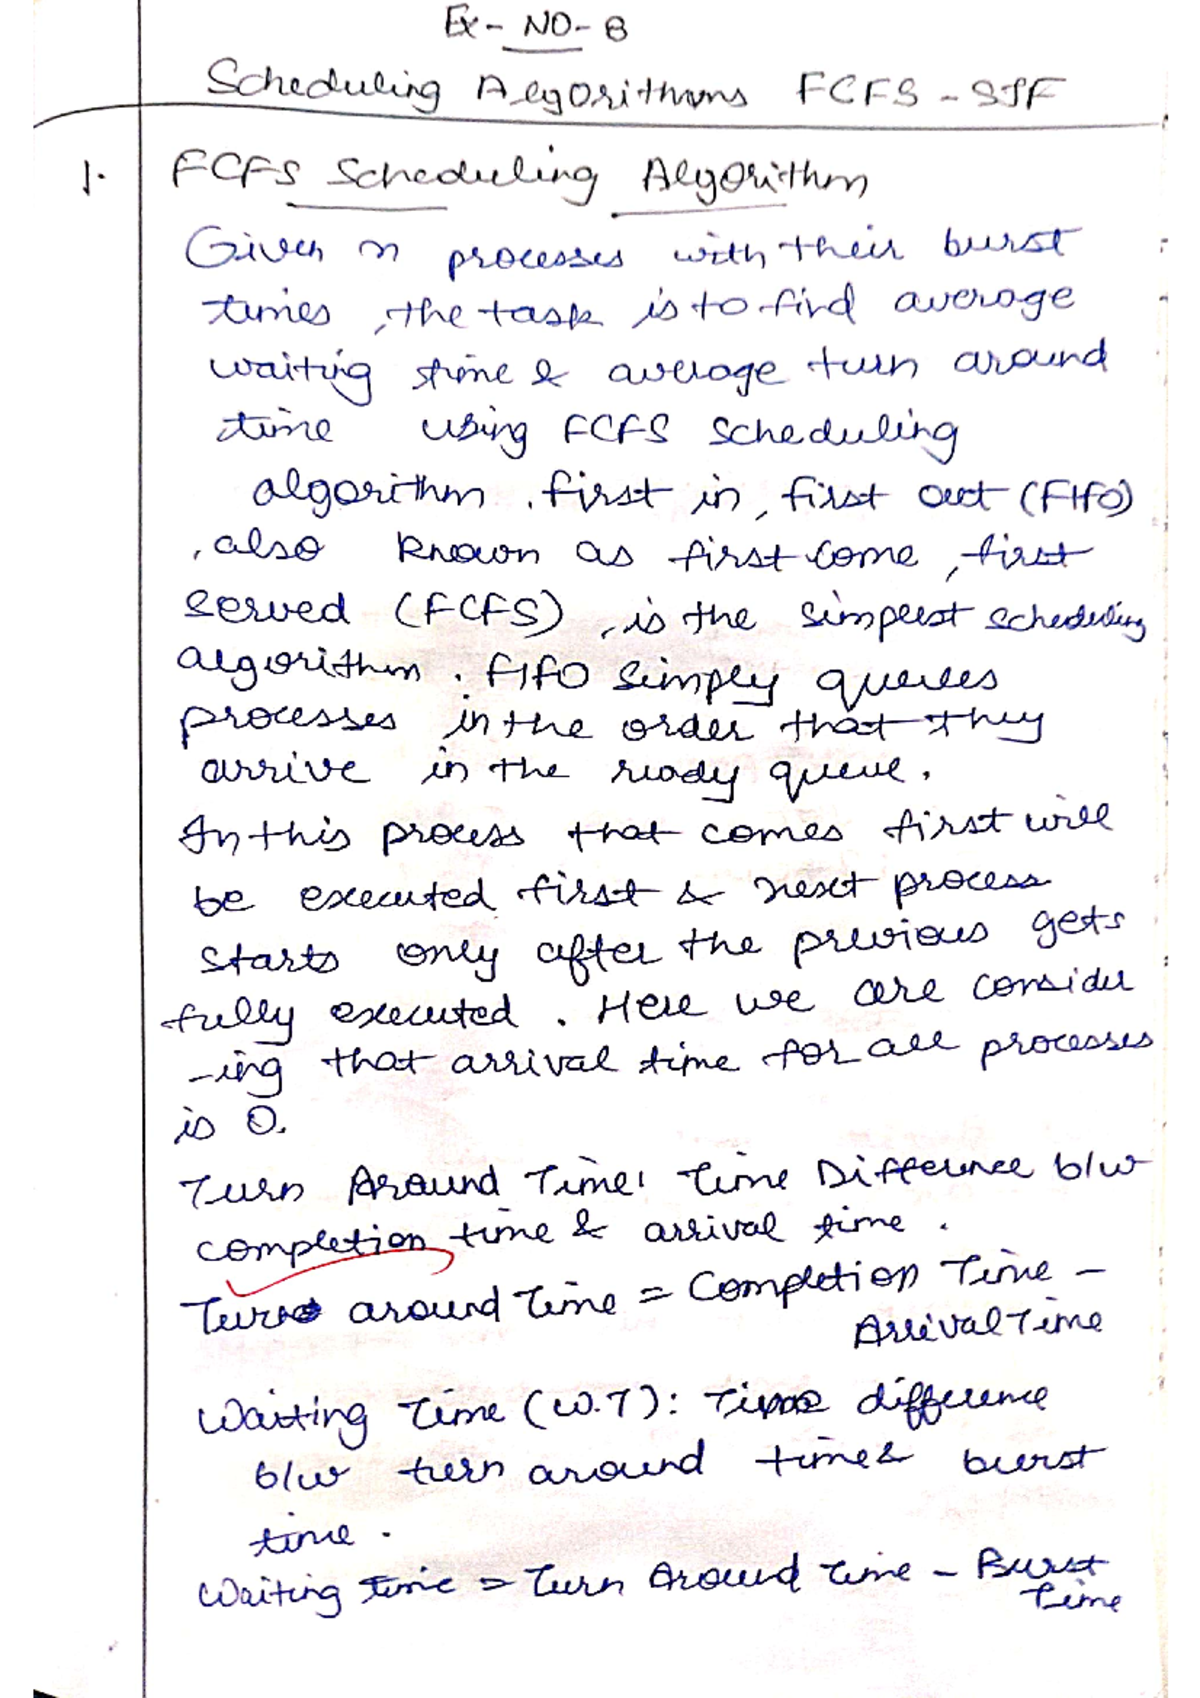 Ex - NO - 8
Scheduling Algorithms FCFS - SJF
1. FCFS Scheduling Algorithm
Given n processes with their burst
times, the task is to find average
waiting time & average turn around
time using FCFS scheduling
algorithm. first in, first out (FIFO)
, also known as first come, first
served (FCFS), is the simplest scheduling
algorithm. FIFO simply queues
processes in the order that they
arrive in the ready queue.
In this process that comes first will
be executed first & next process
starts only after the previous gets
fully executed. Here we are consider
-ing that arrival time for all processes
is 0.
Turn Around Time: Time Difference b/w
completion time & arrival time.
Turn around Time = Completion Time -
Arrival Time
Waiting Time (W.T): Time difference
b/w turn around time & burst
time.
Waiting time = Turn Around Time - Burst
Time